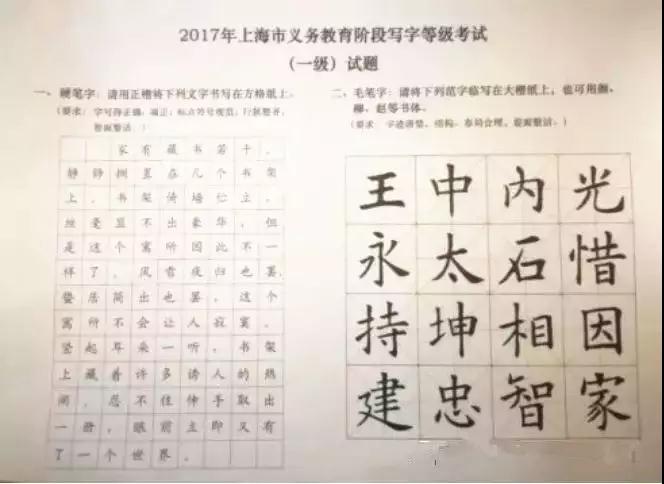 2017年上海市义务教育阶段写字等级考试
（一级）试题
一、硬笔字：请用正楷将下列文字书写在方格纸上。
（要求：字写得正确、端正；标点符号规范；行款整齐、整面整洁。）
家有藏书若干，
静静搁置在几个书架
上。书架倚墙伫立，
丝毫显不出豪华，但
是这个寓所因此不一
样了。风雪夜归也罢，
蛰居简出也罢，这个
寓所不会让人寂寞。
竖起耳朵一听，书架
上藏着许多诱人的热
闹。忍不住伸手取出
一册，眼前立即又有
了一个世界。
二、毛笔字：请将下列范字临写在大楷纸上，也可用颜、
柳、赵等书体。
（要求：字迹清楚，结构、布局合理，整面整洁。）
王中内光
永太石惜
持坤相因
建忠智家